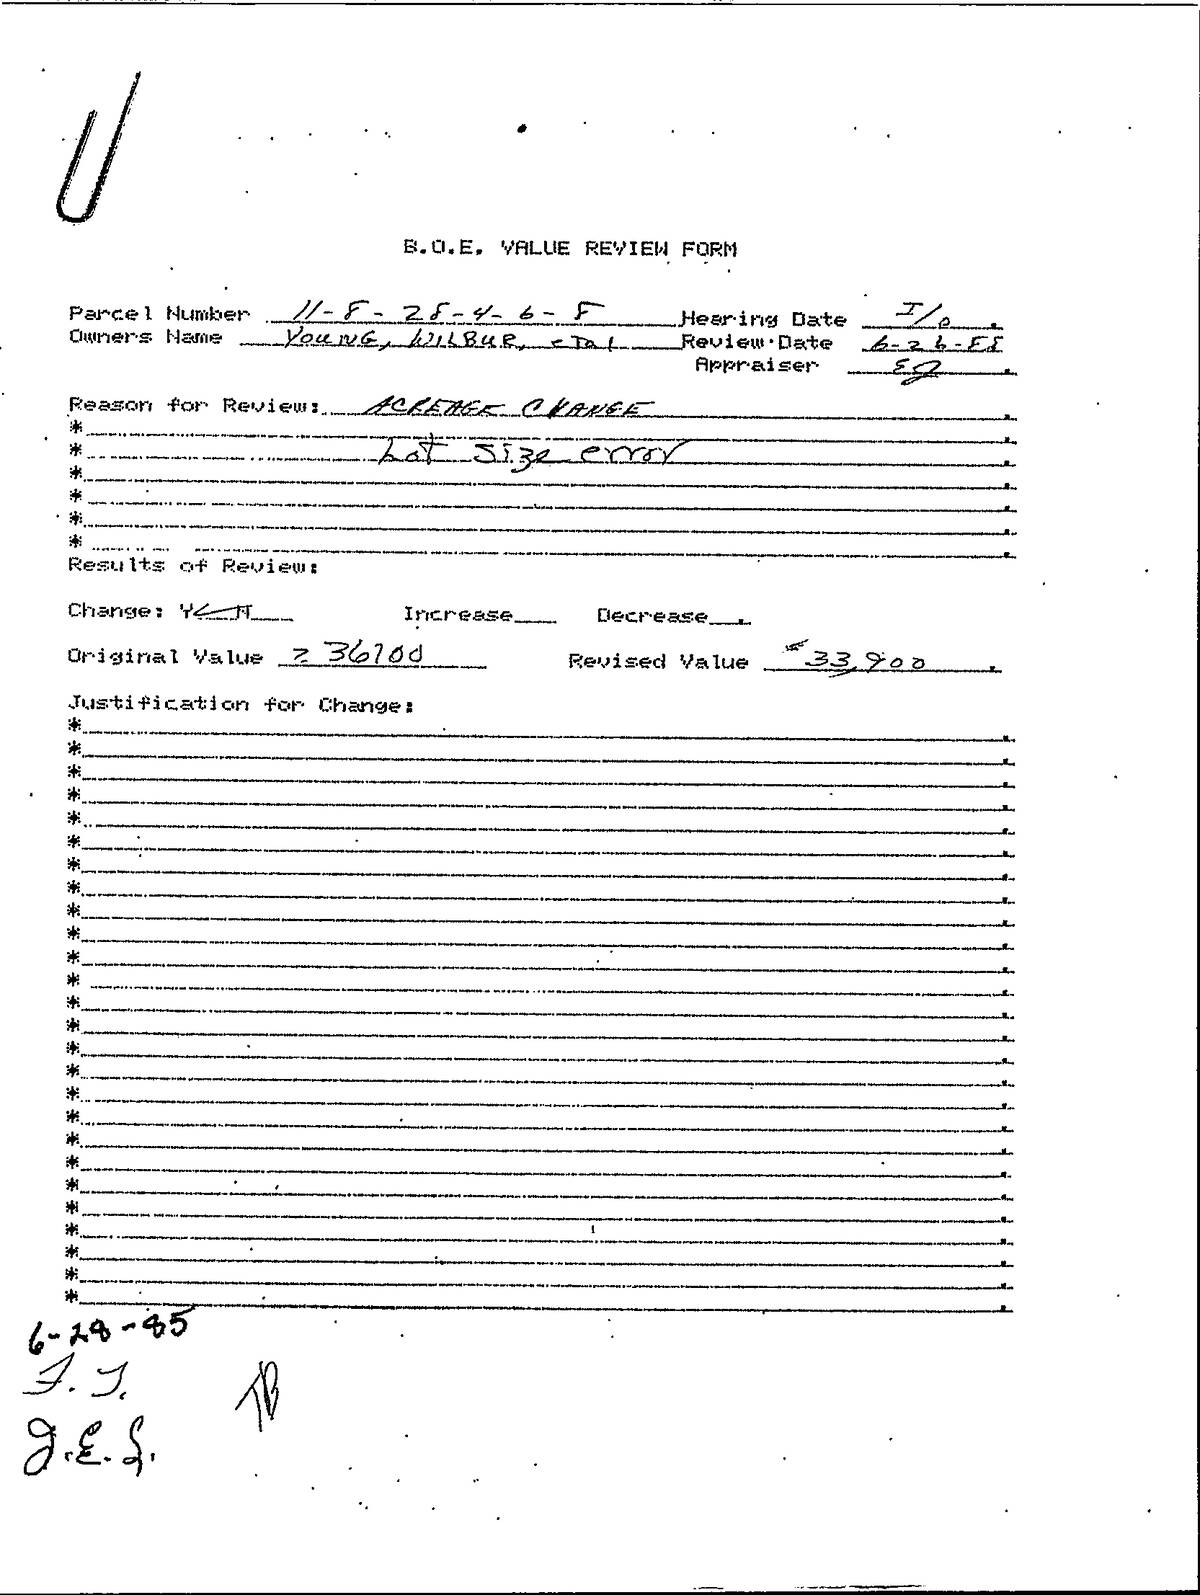 B.O.E. VALUE REVIEW FORM
Parcel Number 11-8-28-4-6-8 Hearing Date I/0
Owners Name YOUNG, WILBUR, etal Review Date 6-26-85
Appraiser EJ
Reason for Review: ACREAGE CHANGE
*
* Lot size error
*
*
*
*
Results of Review:
Change: Y N Increase Decrease
Original Value 36700 Revised Value $33,900
Justification for Change:
*
*
*
*
*
*
*
*
*
*
*
*
*
*
*
*
*
*
*
*
*
*
*
*
*
*
6-28-85
J.E.S.
TB